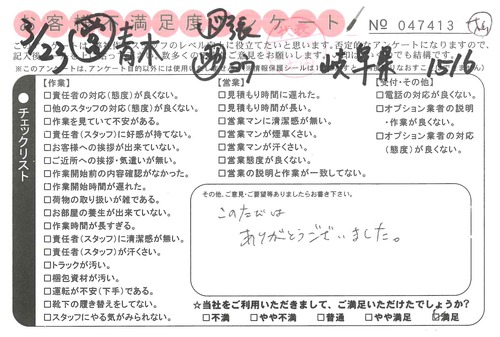 お客様不満足度アンケート
No 047413
3/23 青木 岐阜県 1516
チェックリスト
【作業】
□責任者の対応(態度)が良くない。
□他のスタッフの対応(態度)が良くない。
□作業を見ていて不安がある。
□責任者(スタッフ)に好感が持てない。
□お客様への挨拶が出来ていない。
□ご近所への挨拶・気遣いが無い。
□作業開始前の内容確認がなかった。
□作業開始時間が遅れた。
□荷物の取り扱いが雑である。
□お部屋の養生が出来ていない。
□作業時間が長すぎる。
□責任者(スタッフ)に清潔感が無い。
□責任者(スタッフ)が汗くさい。
□トラックが汚い。
□梱包資材が汚い。
□運転が不安(下手)である。
□靴下の履き替えをしてない。
□スタッフにやる気がみられない。
【営業】
□見積もり時間に遅れた。
□見積もり時間が長い。
□営業マンに清潔感が無い。
□営業マンが煙草くさい。
□営業マンが汗くさい。
□営業態度が良くない。
□営業の説明と作業が一致してない。
【受付・その他】
□電話の対応が良くない。
□オプション業者の説明
・作業が良くない。
□オプション業者の対応
(態度)が良くない。
その他、ご意見・ご要望等ありましたらお書き下さい。
このたびは
ありがとうございました。
☆当社をご利用いただきまして、ご満足いただけたでしょうか?
□不満 □やや不満 □普通 □やや満足 ☑満足